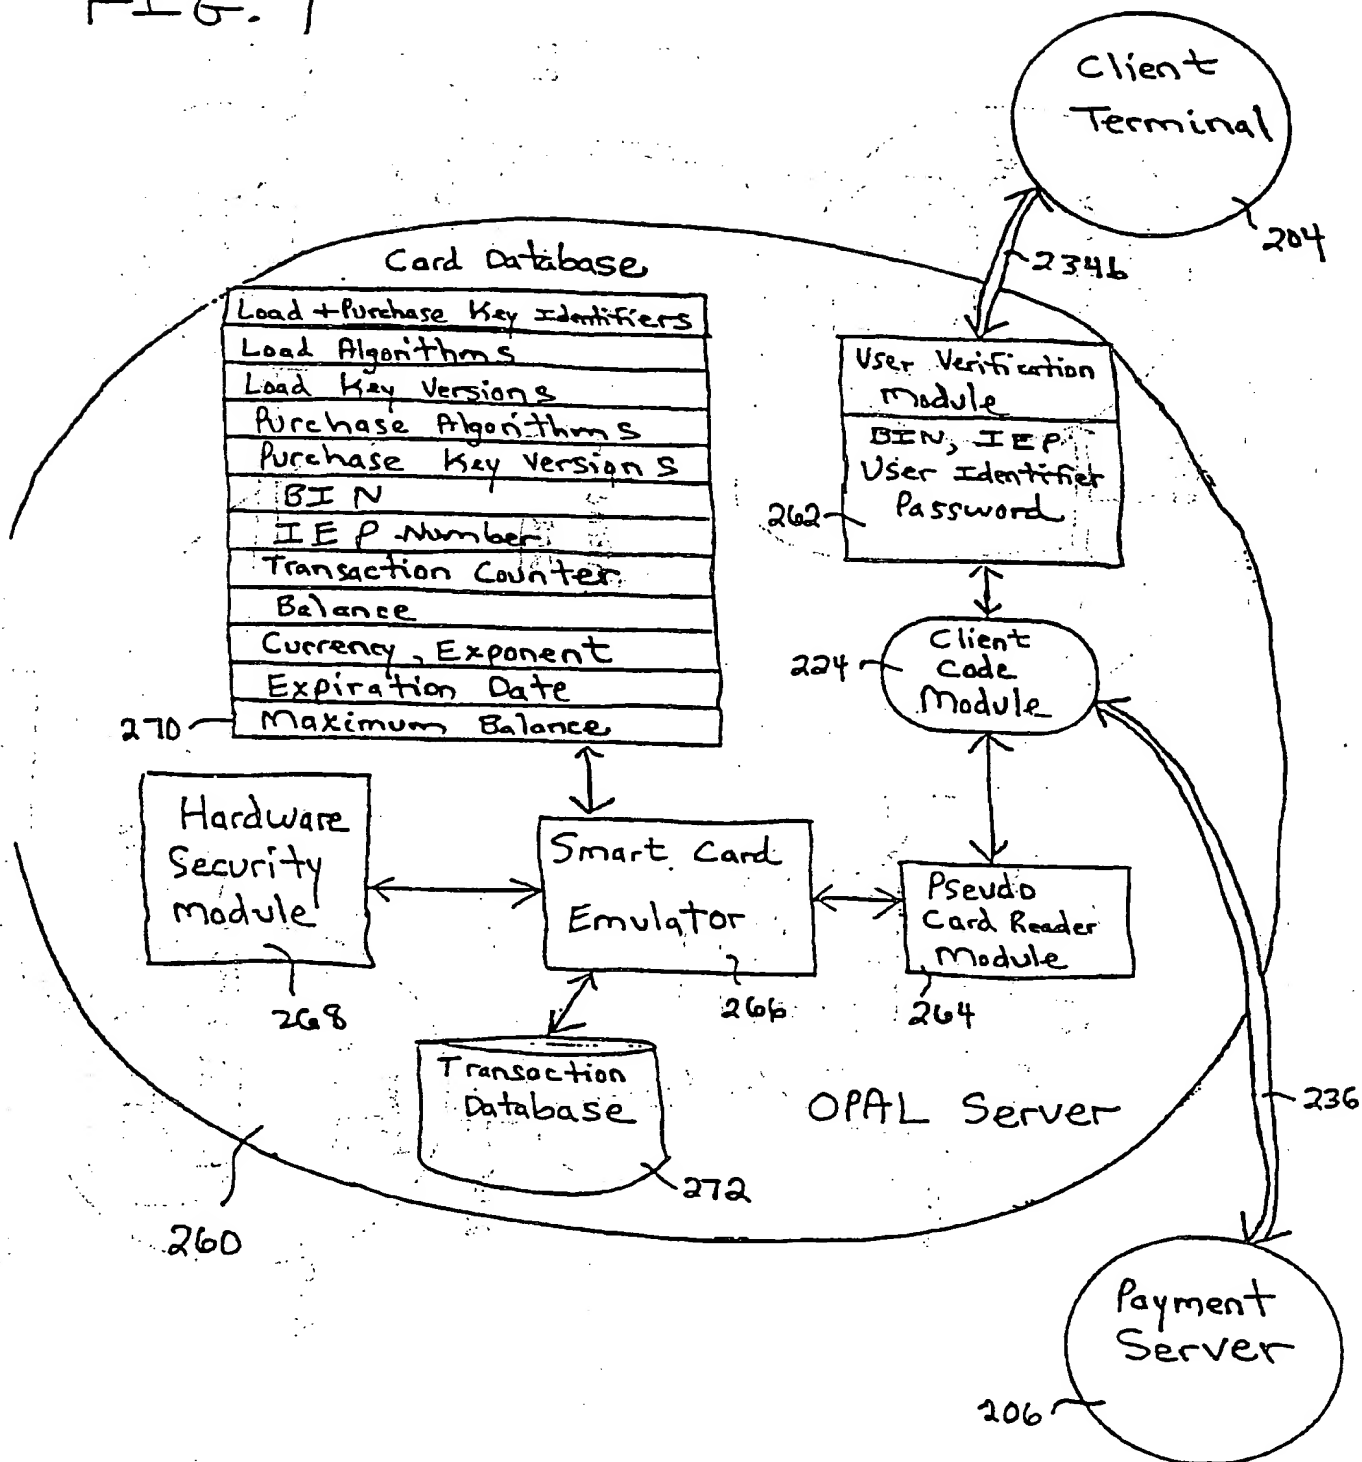 FIG. 1
Client
Terminal
204
234b
Card Database
Load + Purchase Key Identifiers
Load Algorithms
Load Key Versions
Purchase Algorithms
Purchase Key Versions
BIN
IEP Number
Transaction Counter
Balance
Currency, Exponent
Expiration Date
Maximum Balance
270
User Verification
Module
BIN, IEP
User Identifier
Password
262
Client
Code
Module
224
Hardware
Security
Module
268
Smart Card
Emulator
266
Pseudo
Card Reader
Module
264
Transaction
Database
272
OPAL Server
236
260
Payment
Server
206